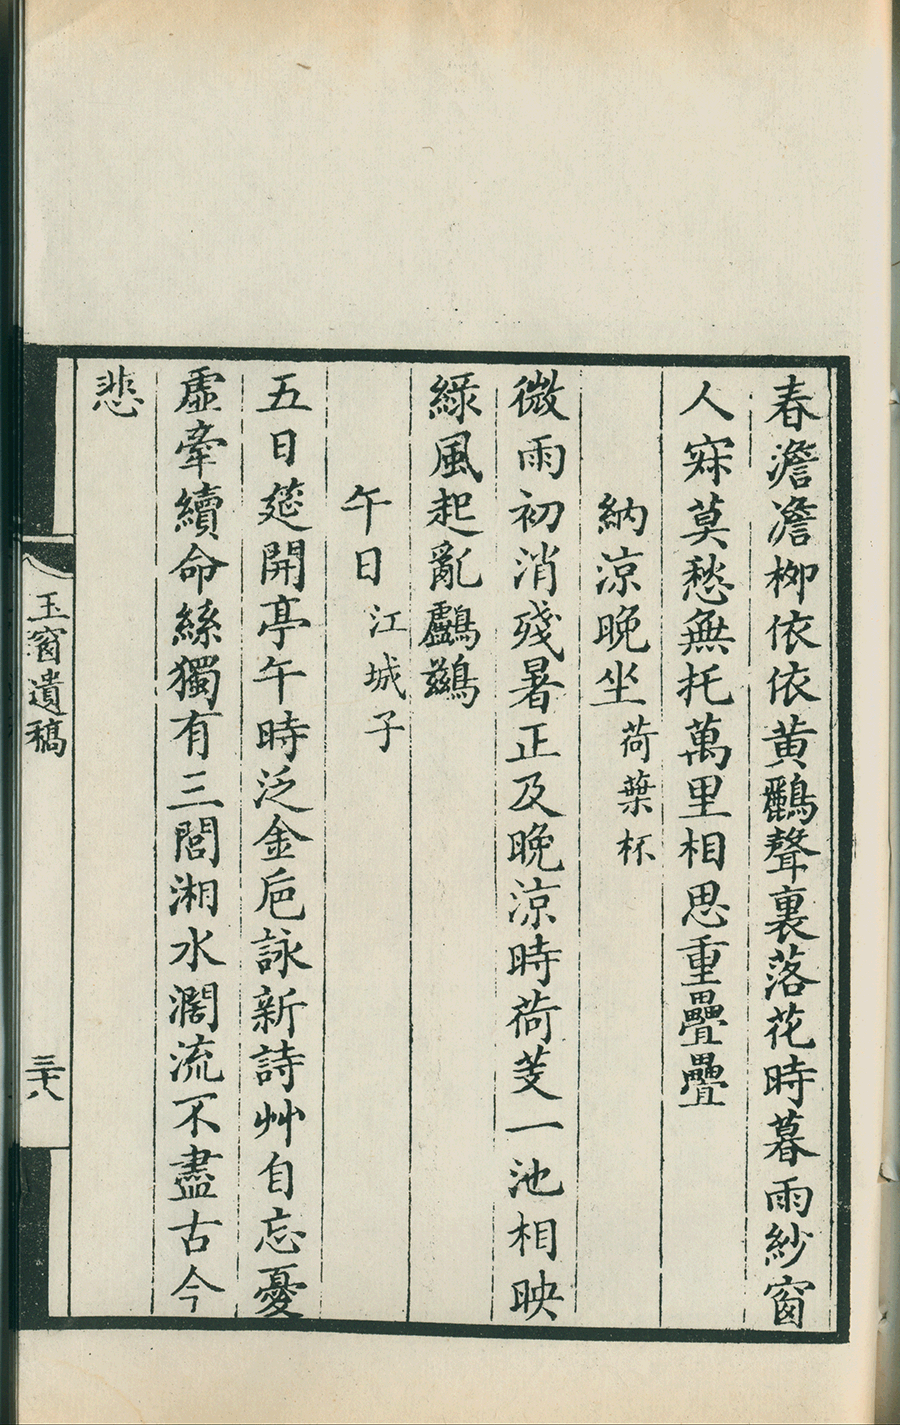 春澹澹栁依依黄鸝聲裏落花時暮雨紗窗
人寂莫愁無托萬里相思重疊疊
納涼晚坐 荷葉杯
微雨初消殘暑正及晚涼時荷芰一池相映
緑風起亂鸕鷀
午日 江城子
五日筵開亭午時泛金巵詠新詩艸自忘憂
虛牽續命絲獨有三閭湘水濶流不盡古今
悲
玉窗遺稿
三十八